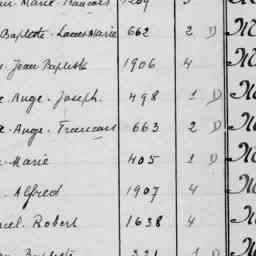 Marie François 1269 3
Baptiste-Louis Marie 662 2 D M
Jean Baptiste 1906 4 M
Ange-Joseph. 498 1 D M
Ange-François 663 2 D M
Marie 405 1 D M
Alfred 1907 4 M
Robert 1638 4 M
Baptiste 221 1 D M